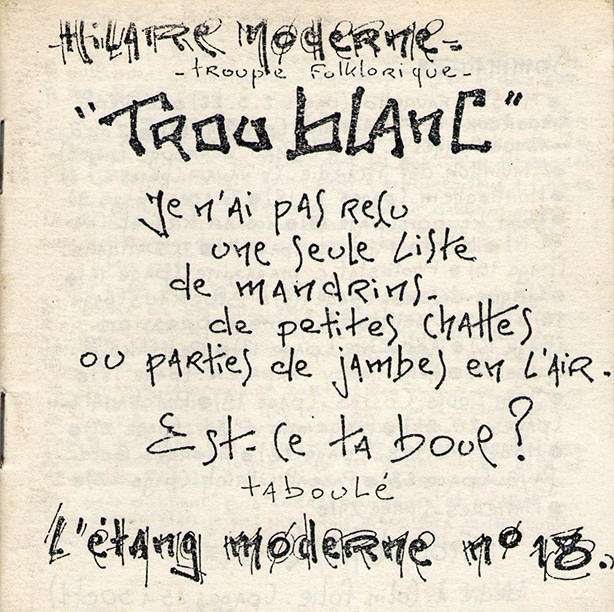 HiLAiRE MODERNE =
- troupe Folklorique -
"TROU blANC"
Je n'Ai pAs Reçu
une seule Liste
de mANDRiNs.
de petites chattes
ou pARties de jambes en L'AiR.
Est-ce ta boue?
tABouLé
L'étang moderne n° 18.